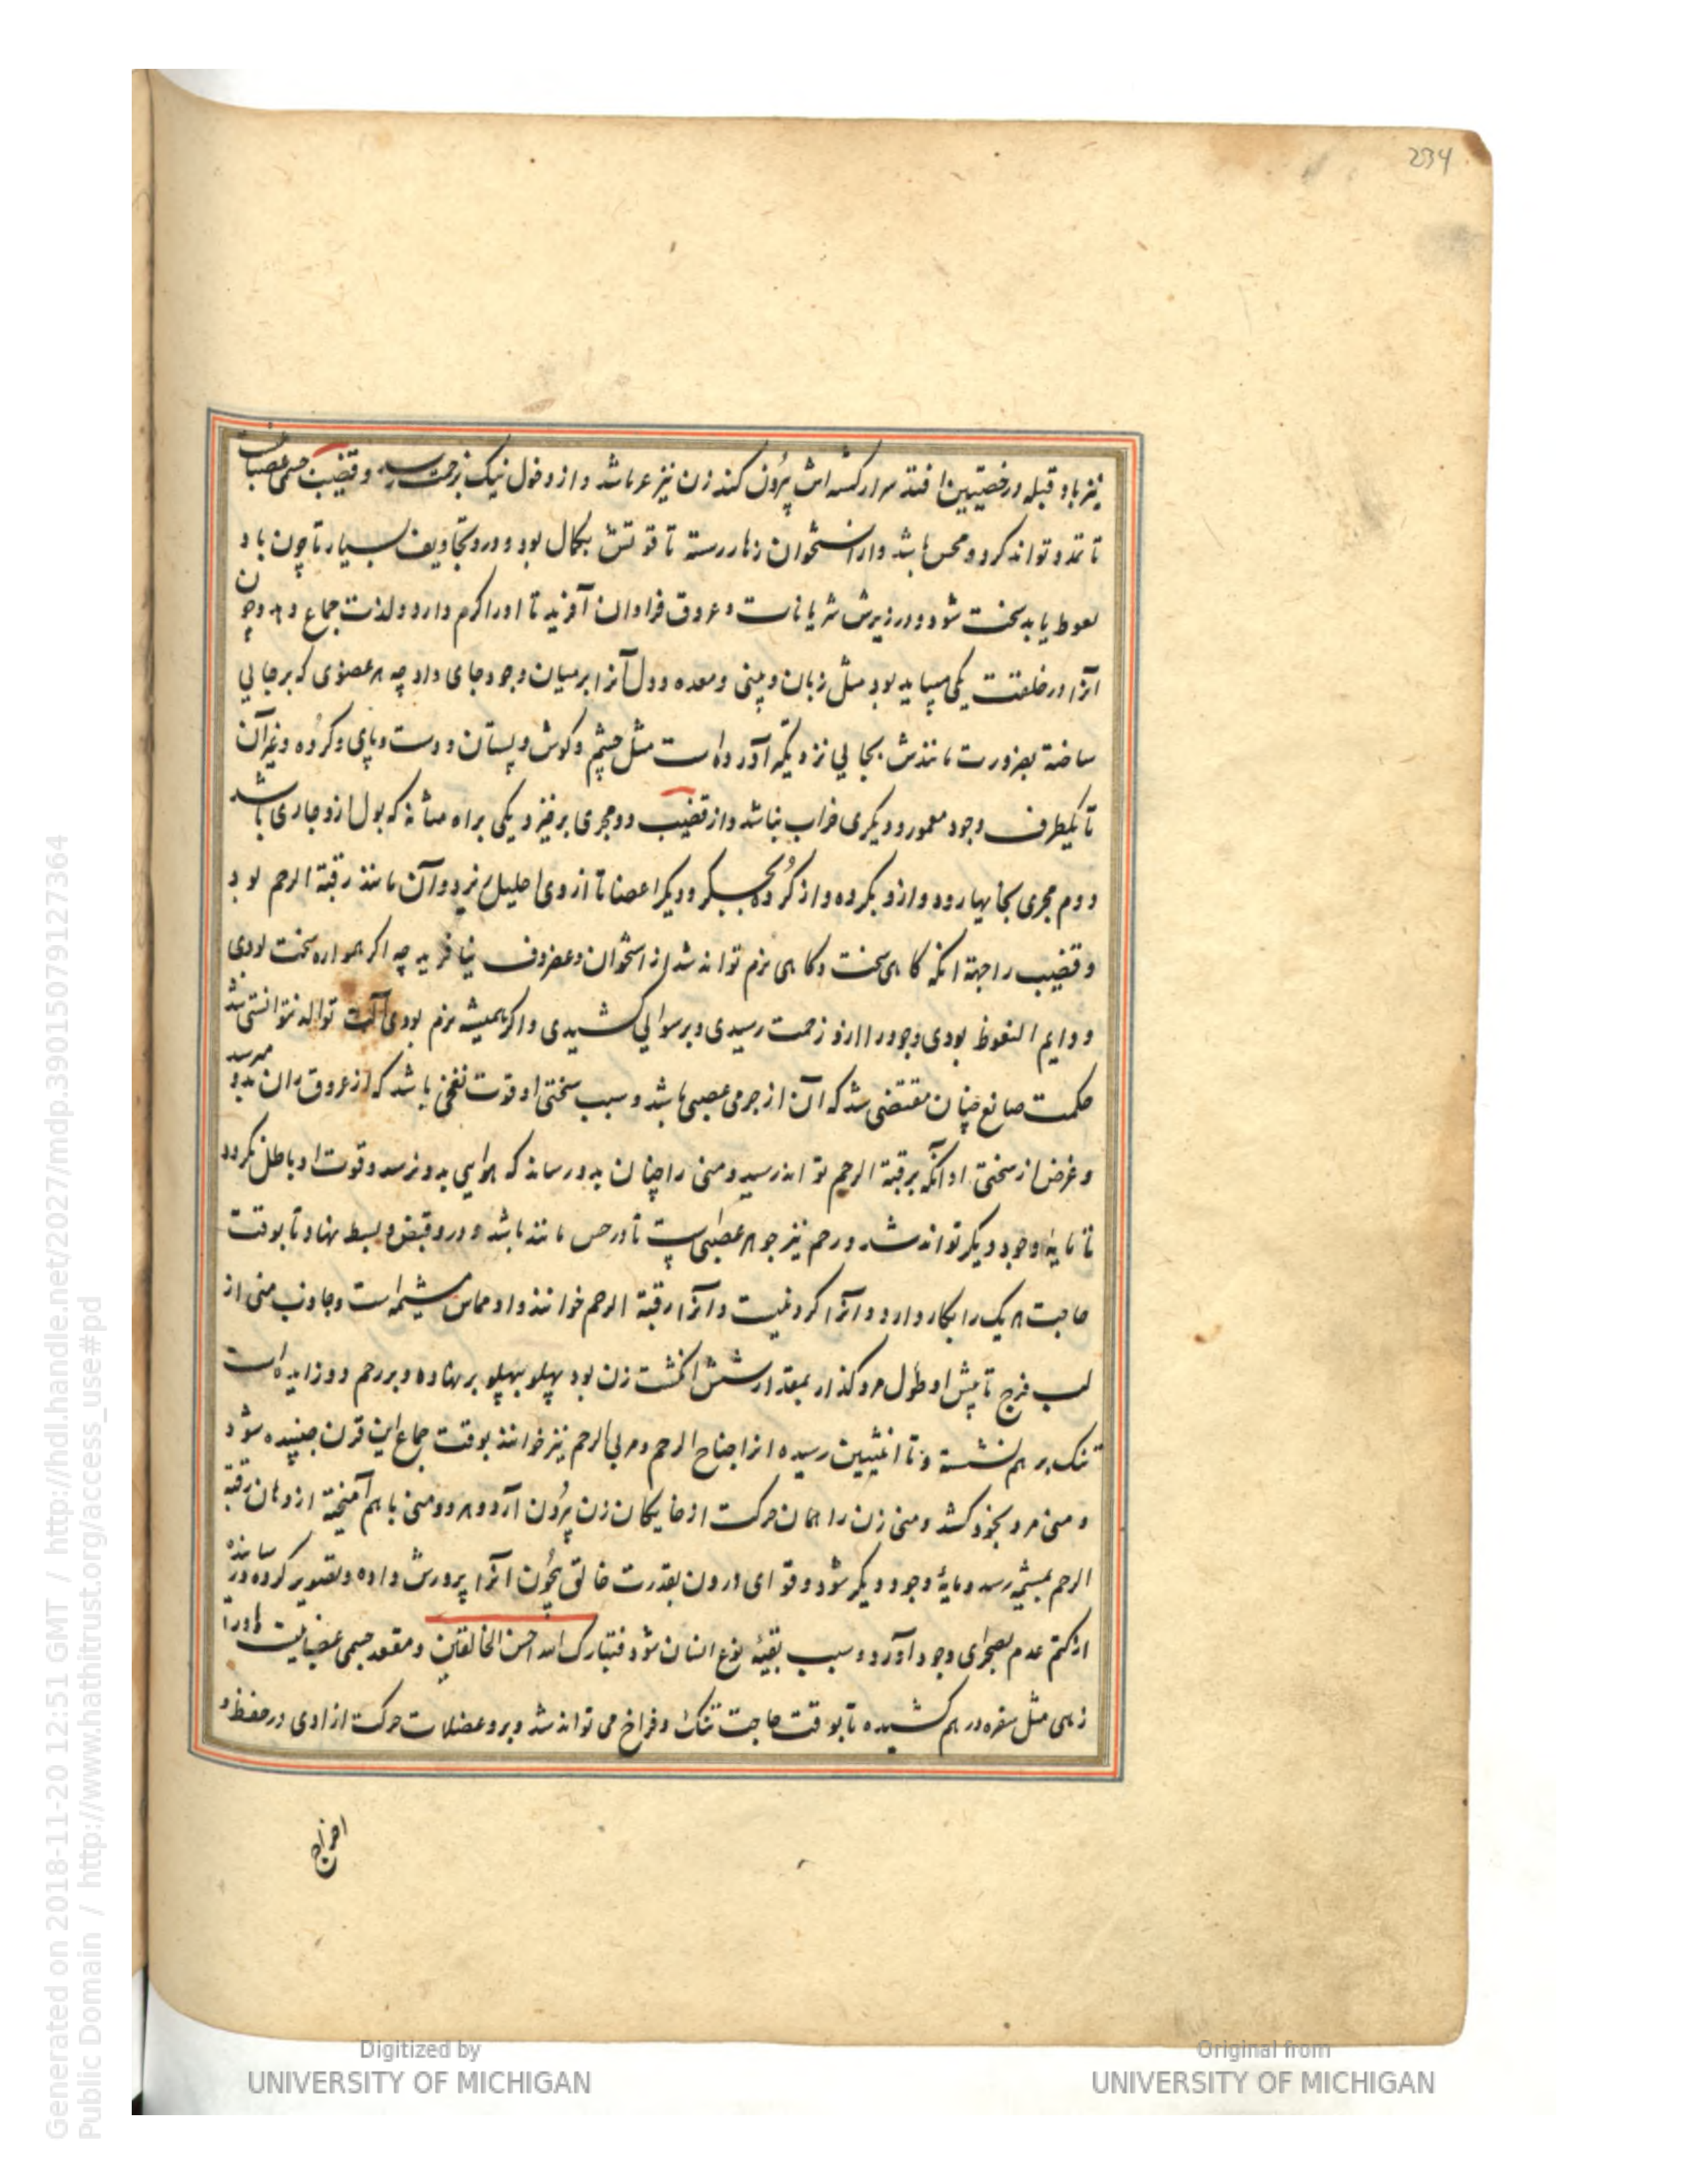 234
نیز باد قبله در خصیتین افتد سرار کشه اش بیرون کند زن نیز عر باشد و از دخول نیک زحمت رسد و قضیب جسمی عصبانیست
تا تمدد تواند کرد و محس باشد و از استخوان زهار رسته تا قوتش بکمال بود و درو تجاویف بسیار تا چون باد
نعوظ یابد سخت شود و در زیرش شریانات و عروق فراوان آفرید تا او را گرم دارد و لذت جماع دهد و چون
آنرا در خلقت یکی میباید بود مثل زبان و بینی و معده و دل آنرا بر میان وجود جای داد چه هر عضوی که بر جایی
ساخته بضرورت مانندش بجایی نزدیکه آورده است مثل چشم و کوش و پستان و دست و پای و کرده و غیر آن
تا یکطرف وجود معمور و دیکری خراب نباشد و از قضیب دو مجری برخیزد یکی براه مثانه که بول ازو جاری باشد
دوم مجری بخایها رود و ازو بکرده و از کرده بجکر و دیکر اعضا تا از وی احلیل ریزد و آن مانند رقبة الرحم بود
و قضیب را جهة آنکه کاهی سخت و کاهی نرم تواند شد از استخوان و غضروف نیافرید چه اکر همواره سخت بودی
و دایم النعوظ بودی وجود را ازو زحمت رسیدی و برسوایی کشیدی و اکر همیشه نرم بودی آلت توالد نتوانستی شد
حکمت صانع چنان مقتضی شد که آن از جرمی عصبی باشد و سبب سختی او قوت نفخی باشد که از عروق بدان بدو میرسد
و غرض از سختی او آنکه برقبة الرحم تواند رسید و منی را چنان بدو رساند که هوایی بدو نرسد و قوت او باطل نکردد
تا مایهٔ وجود دیکر تواند شد و رحم نیز جوهر عصبی است تا در حس مانند باشد و درو قبض و بسط نهاد تا بوقت
حاجت هر یک را بکار دارد و آنرا کردنیست و آنرا رقبة الرحم خوانند و او مماس مشیمه است و جاذب منی از
لب فرج تا پیش او طول مرد کذار بمقدار شش انکشت زن بود پهلو بپهلو بر نهاده و بر رحم دو زایده است
تنک بر هم نشسته و تا انثیین رسیده آنرا جناح الرحم و مربی الرحم نیز خوانند بوقت جماع این قرن جنبیده شود
و منی مرد بخود کشد و منی زن را همان حرکت از خایکان زن بیرون آرد و هر دو منی با هم آمیخته از دهان رقبة
الرحم بمشیمه رسد و مایهٔ وجود دیکر شود و قوای درون بقدرت خالق بیچون آنرا پرورش داده و تصویر کرده
از کتم عدم بصحرای وجود آورد و سبب بقیهٔ نوع انسان شود فتبارک الله احسن الخالقین و مقعد جسمی عصبانیست
زهی مثل سفره در هم کشیده تا بوقت حاجت تنک و فراخ می تواند شد و برو عضلات حرکت ارادی در حفظ و
اخراج
Generated on 2018-11-20 12:51 GMT / http://hdl.handle.net/2027/mdp.39015079127364
Public Domain / http://www.hathitrust.org/access_use#pd
Digitized by
UNIVERSITY OF MICHIGAN
Original from
UNIVERSITY OF MICHIGAN